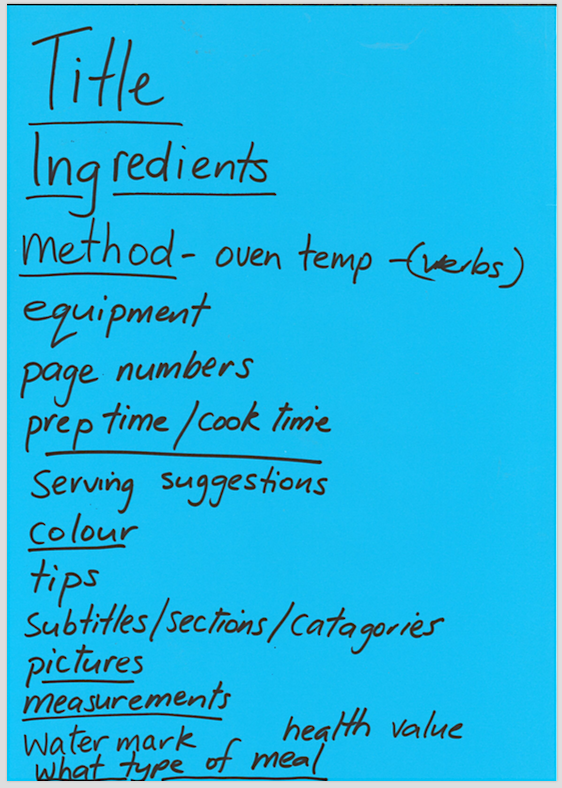 Title
Ingredients
method - oven temp - (verbs)
equipment
page numbers
prep time / cook time
Serving suggestions
colour
tips
Subtitles / sections / catagories
pictures
measurements
Water mark health value
what type of meal